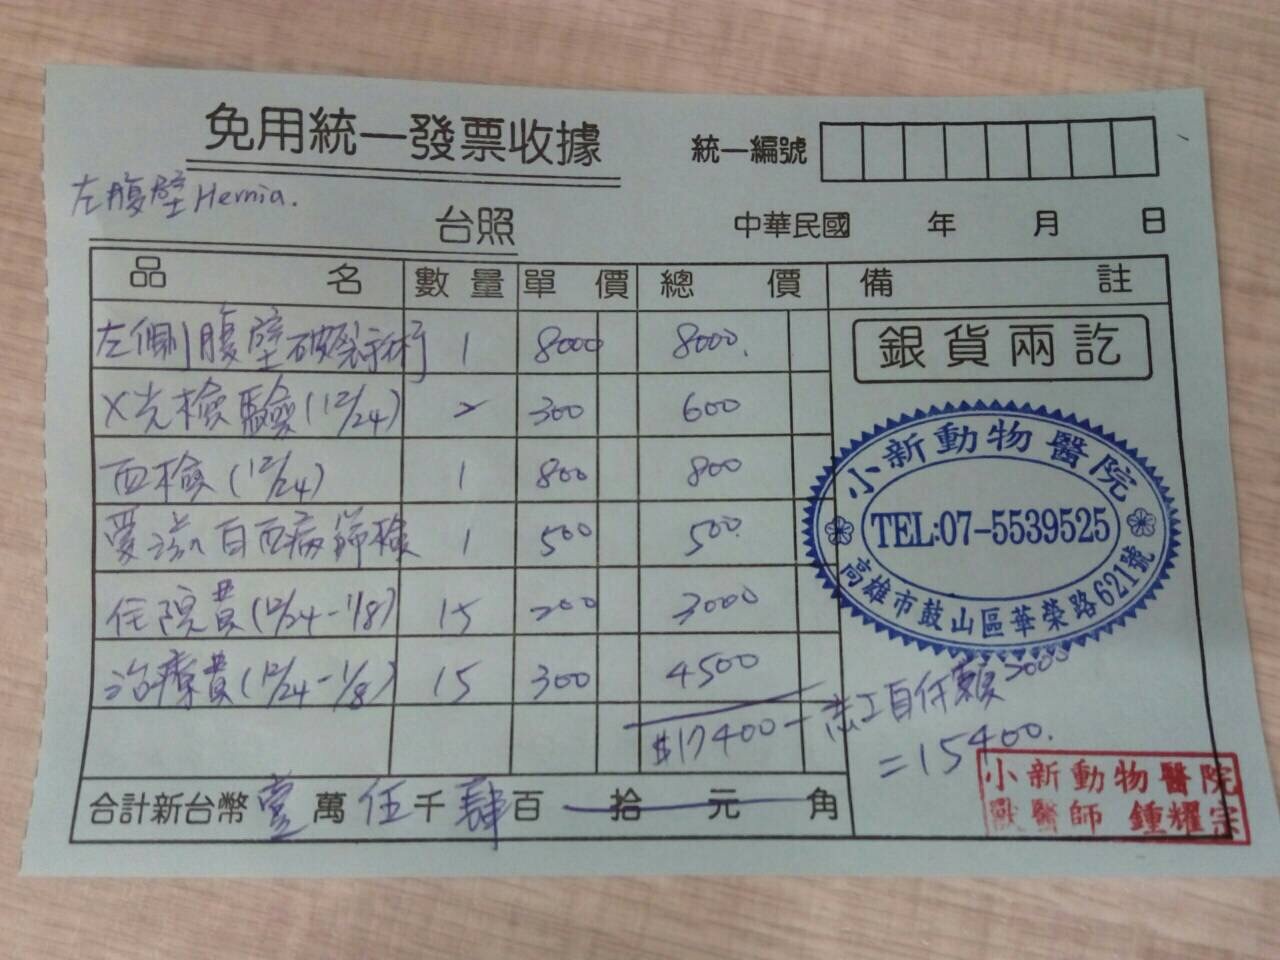 免用統一發票收據
統一編號
左腹壁Hernia.
台照
中華民國 年 月 日
品名 數量 單價 總價 備註
左側腹壁破裂手術 1 8000 8000.
銀貨兩訖
X光檢驗(12/24) 2 300 600
血檢(12/24) 1 800 800
愛滋白血病篩檢 1 500 500.
住院費(12/24-1/8) 15 200 3000
治療費(12/24-1/8) 15 300 4500
小新動物醫院
TEL:07-5539525
高雄市鼓山區華榮路621號
$17400-志工自付額2000
=15400.
合計新台幣壹萬伍千肆百拾元角
小新動物醫院
獸醫師 鍾耀宗